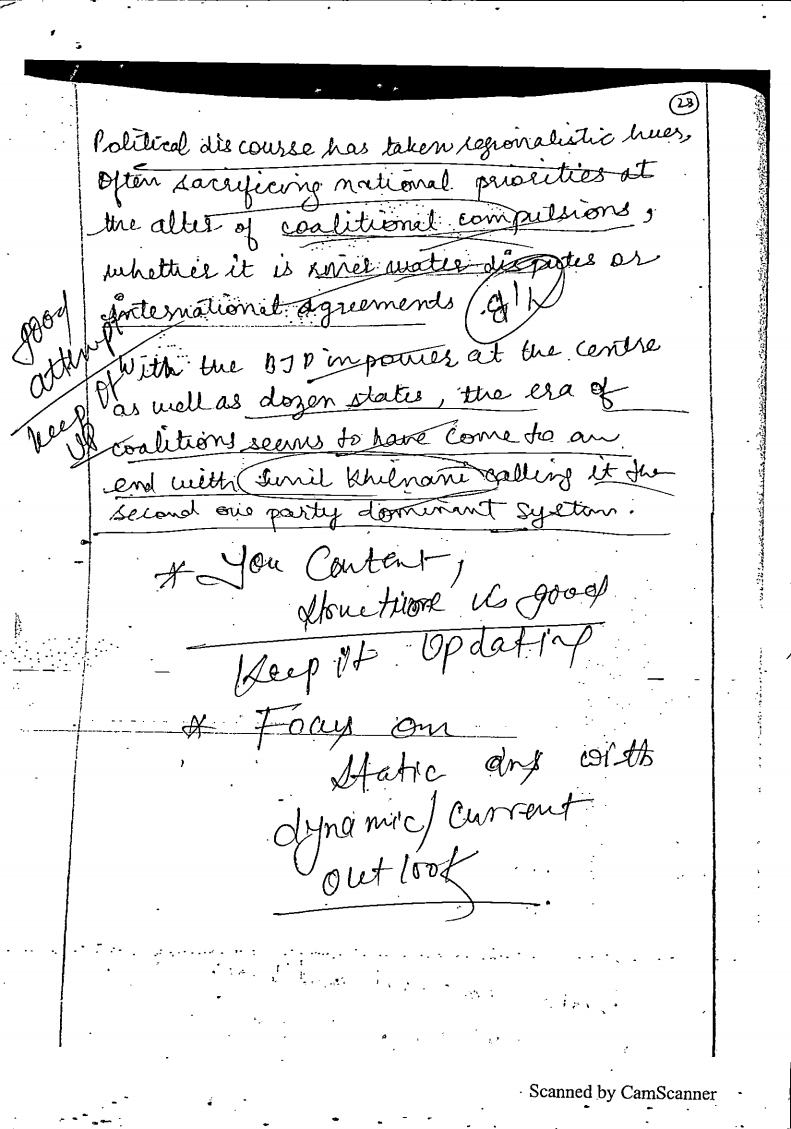 28
Political discourse has taken regionalistic hues,
often sacrificing national priorities at
the alter of coalitional compulsions,
whether it is river water disputes or
international agreements.
good
attempt
keep
it
up
With the BJP in power at the centre
as well as dozen states, the era of
coalitions seems to have come to an
end with Sunil Khilnani calling it the
second one party dominant system.
* You Content,
structure is good
Keep it Updating
* Focus on
static ans with
dynamic/current
outlook
Scanned by CamScanner